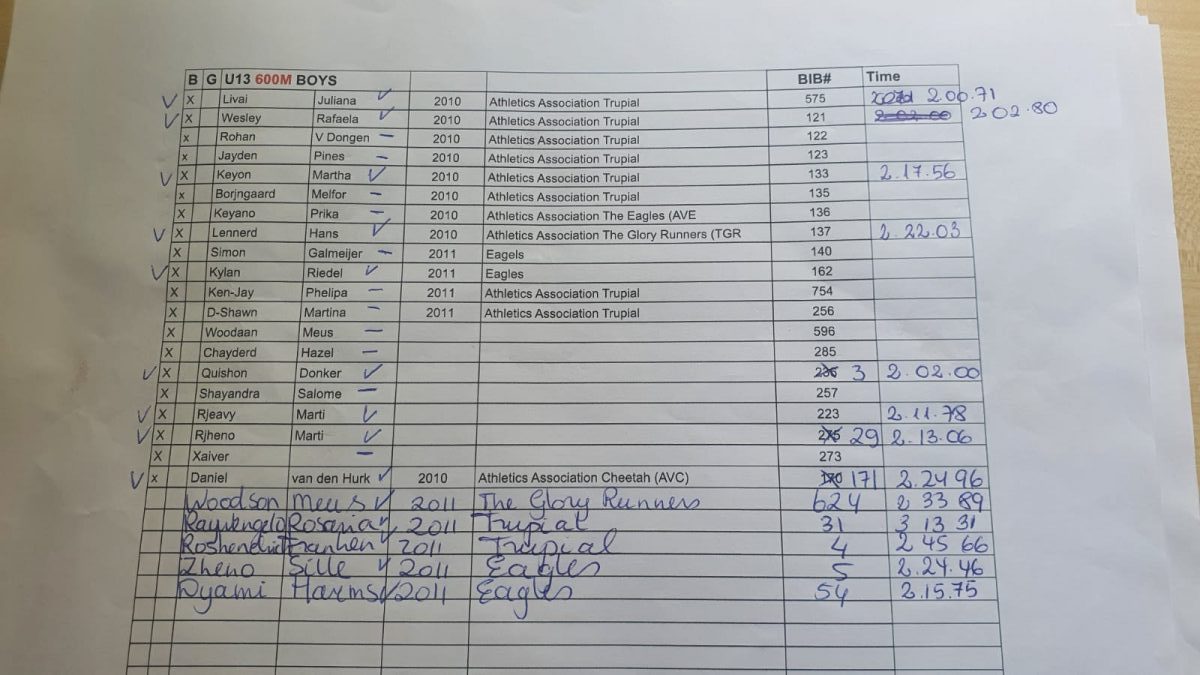 B G U13 600M BOYS BIB# Time
✓ X Livai Juliana ✓ 2010 Athletics Association Trupial 575 2.00.71
✓ X Wesley Rafaela ✓ 2010 Athletics Association Trupial 121 2.02.00 2.02.80
X Rohan V Dongen – 2010 Athletics Association Trupial 122
x Jayden Pines – 2010 Athletics Association Trupial 123
✓ X Keyon Martha ✓ 2010 Athletics Association Trupial 133 2.17.56
x Borjngaard Melfor – 2010 Athletics Association Trupial 135
X Keyano Prika – 2010 Athletics Association The Eagles (AVE 136
✓ X Lennerd Hans ✓ 2010 Athletics Association The Glory Runners (TGR 137 2.22.03
X Simon Galmeijer – 2011 Eagels 140
✓ X Kylan Riedel ✓ 2011 Eagles 162
X Ken-Jay Phelipa – 2011 Athletics Association Trupial 754
X D-Shawn Martina – 2011 Athletics Association Trupial 256
X Woodaan Meus – 596
X Chayderd Hazel – 285
✓ X Quishon Donker ✓ 3 2.02.00
X Shayandra Salome – 257
✓ X Rjeavy Marti ✓ 223 2.11.78
✓ X Rjheno Marti ✓ 29 2.13.06
X Xaiver – 273
✓ x Daniel van den Hurk ✓ 2010 Athletics Association Cheetah (AVC) 170 171 2.24 96
Woodson Meus ✓ 2011 The Glory Runners 624 2 33 89
✓ 2011 Trupial 31 3 13 31
✓ 2011 Trupial 4 2 45 66
Zheno Sille ✓ 2011 Eagles 5 2.24.46
Dyami Harms ✓ 2011 Eagles 54 2.15.75